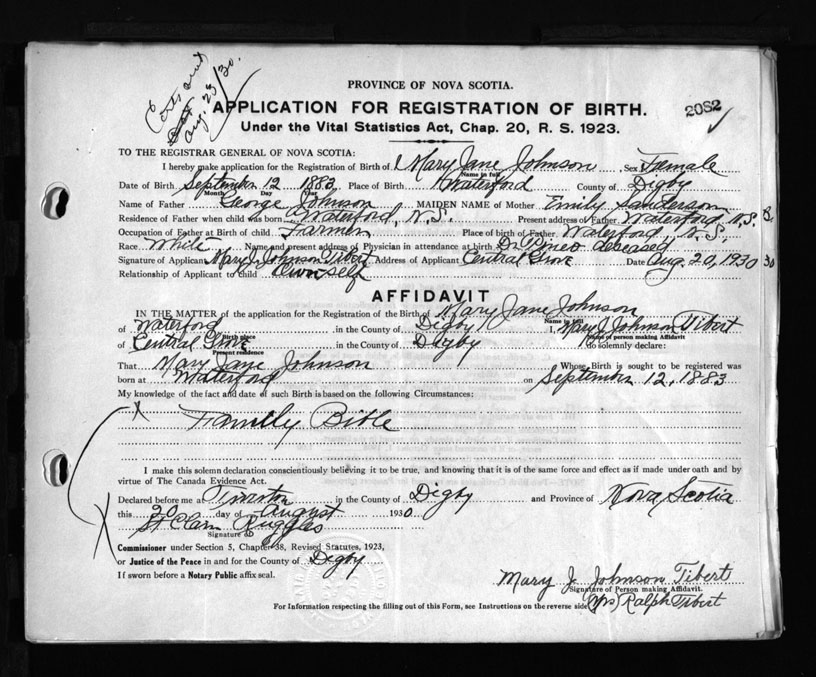 Aug. 23/30.
PROVINCE OF NOVA SCOTIA.
2082
APPLICATION FOR REGISTRATION OF BIRTH.
Under the Vital Statistics Act, Chap. 20, R. S. 1923.
TO THE REGISTRAR GENERAL OF NOVA SCOTIA:
I hereby make application for the Registration of Birth of Mary Jane Johnson Sex Female
Name in full
Date of Birth September 12 1883 Place of Birth Waterford County of Digby
Month Day Year
Name of Father George Johnson MAIDEN NAME of Mother Emily Sanderson
Residence of Father when child was born Waterford, N.S. Present address of Father Waterford N.S.
Occupation of Father at Birth of child Farmer Place of birth of Father Waterford, N.S.,
Race White Name and present address of Physician in attendance at birth Dr. Pineo deceased
Signature of Applicant Mary J. Johnson Tibert Address of Applicant Central Grove Date Aug. 20, 1930 30
Relationship of Applicant to child Own self
AFFIDAVIT
IN THE MATTER of the application for the Registration of the Birth of Mary Jane Johnson
Name in full
of Waterford in the County of Digby I, Mary J. Johnson Tibert
Birth place Name of person making Affidavit
of Central Grove in the County of Digby do solemnly declare:
Present residence
That Mary Jane Johnson Whose Birth is sought to be registered was
born at Waterford on September 12, 1883
My knowledge of the fact and date of such Birth is based on the following Circumstances:
X
Family Bible
I make this solemn declaration conscientiously believing it to be true, and knowing that it is of the same force and effect as if made under oath and by
virtue of The Canada Evidence Act.
Declared before me at Tiverton in the County of Digby and Province of Nova Scotia
this 20 day of August 1930.
St Clair Ruggles
Signature of
X
Commissioner under Section 5, Chapter 38, Revised Statutes, 1923,
or Justice of the Peace in and for the County of Digby
If sworn before a Notary Public affix seal.
Mary J. Johnson Tibert
Signature of Person making Affidavit.
(Mrs) Ralph Tibert
For Information respecting the filling out of this Form, see Instructions on the reverse side